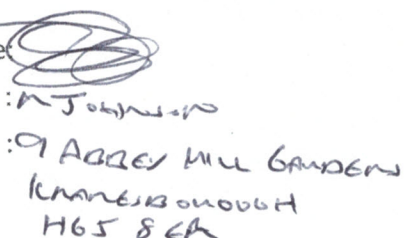 e:
: M JOHNSON
: 9 ABBEY MILL GARDENS
KNARESBOROUGH
HG5 8ER